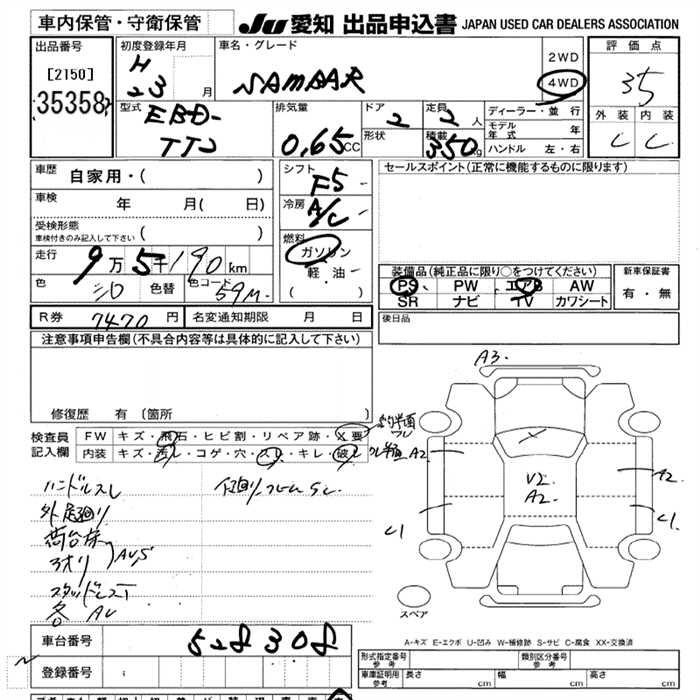 車内保管・守衛保管
JU 愛知 出品申込書 JAPAN USED CAR DEALERS ASSOCIATION
出品番号
[2150]
35358
初度登録年月
H
23 月
車名・グレード
SAMBAR
2WD
4WD
評価点
35
外装 内装
C C
型式
EBD-
TT2
排気量
0.65 CC
ドア
2
形状
定員
2 人
積載
350 kg
ディーラー・並行
モデル年式 年
ハンドル 左・右
車歴
自家用・( )
車検
年 月( 日)
受検形態
車検付きのみ記入して下さい ( )
走行
9万5千190km
色
シロ
色替
色コード
59M
シフト
F5
冷房
A/C
燃料
ガソリン
軽油
( )
セールスポイント(正常に機能するものに限ります)
装備品(純正品に限り○をつけてください)
PS PW エアB AW
SR ナビ TV カワシート
新車保証書
有・無
R券 7470 円 名変通知期限 月 日
後日品
注意事項申告欄(不具合内容等は具体的に記入して下さい)
修復歴 有 (箇所
検査員
記入欄
FW キズ・飛石・ヒビ割・リペア跡・X要
内装 キズ・汚レ・コゲ・穴・スレ・キレ・破レ
ハンドルスレ
下廻りフレームSC
外足廻り
荷台床
アオリ AU,S
スタッドレスT
各AU
A3
A2
A2
V2
A2
C1
C1
スペア
A-キズ E-エクボ U-凹み W-補修跡 S-サビ C-腐食 XX-交換済
車台番号 528308
登録番号
形式指定番号
参考
類別区分番号
参考
車庫証明用
参考
長さ cm 幅 cm 高さ cm